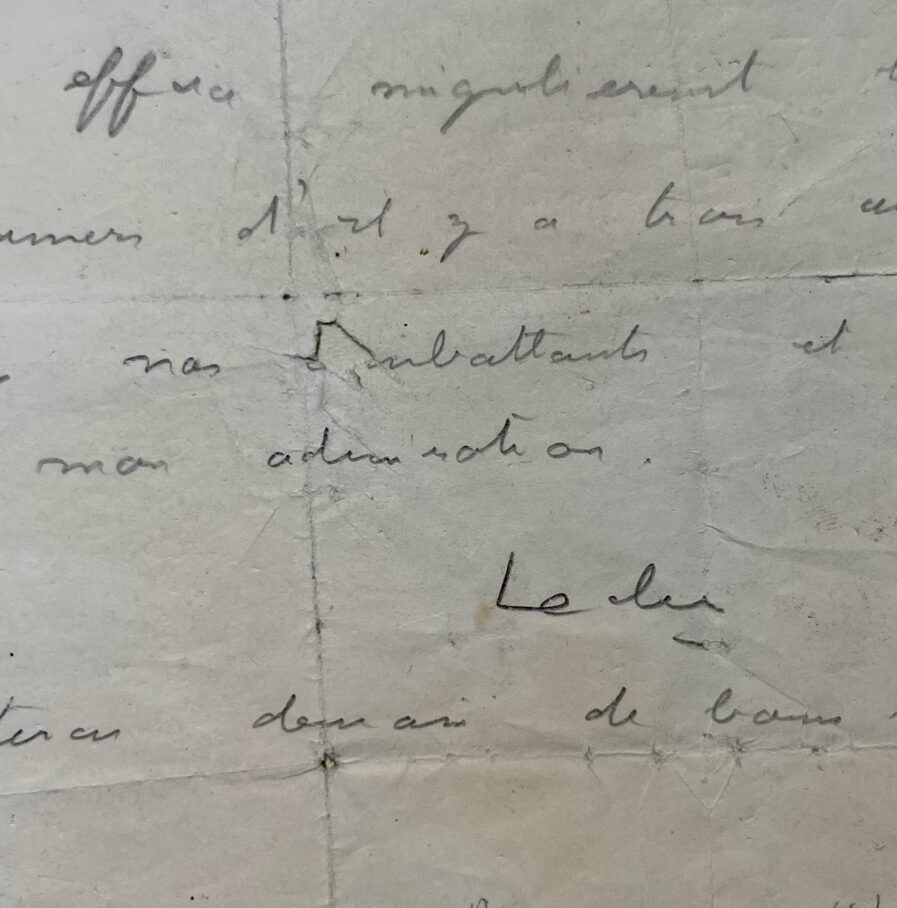 effaça singulièrement
d'il y a trois
nos combattants et
mon admiration.
Leclerc
demain de bons